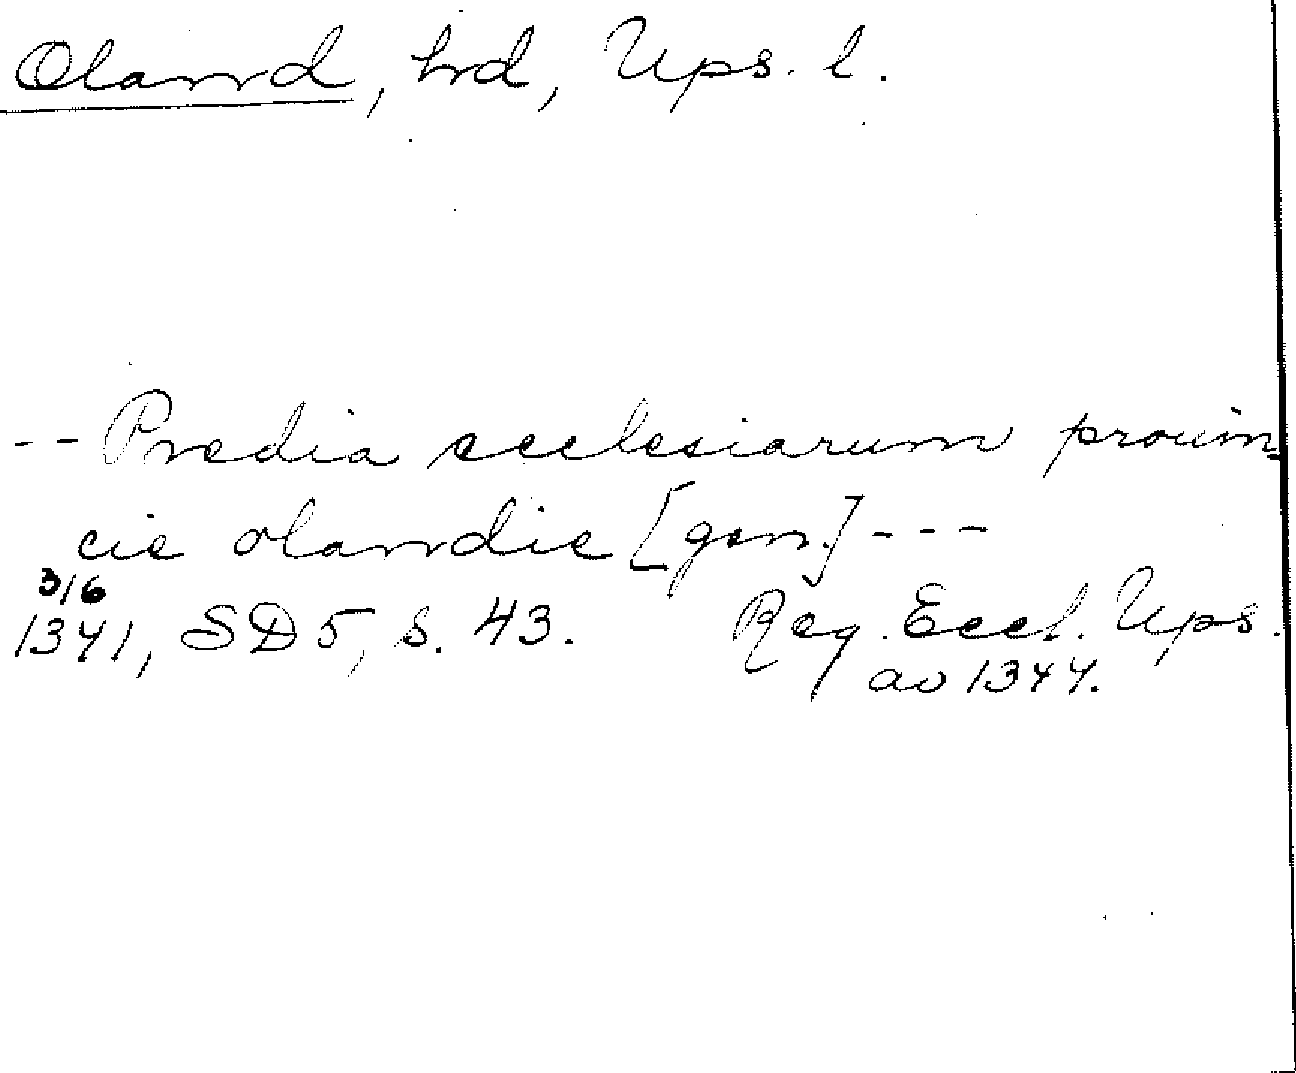 Oland, hd, Ups. l.
-- Predia ecclesiarum prouin
cie olandie [gen.] ---
3/6
1341, SD 5, s. 43. Reg. Eccl. Ups.
av 1344.